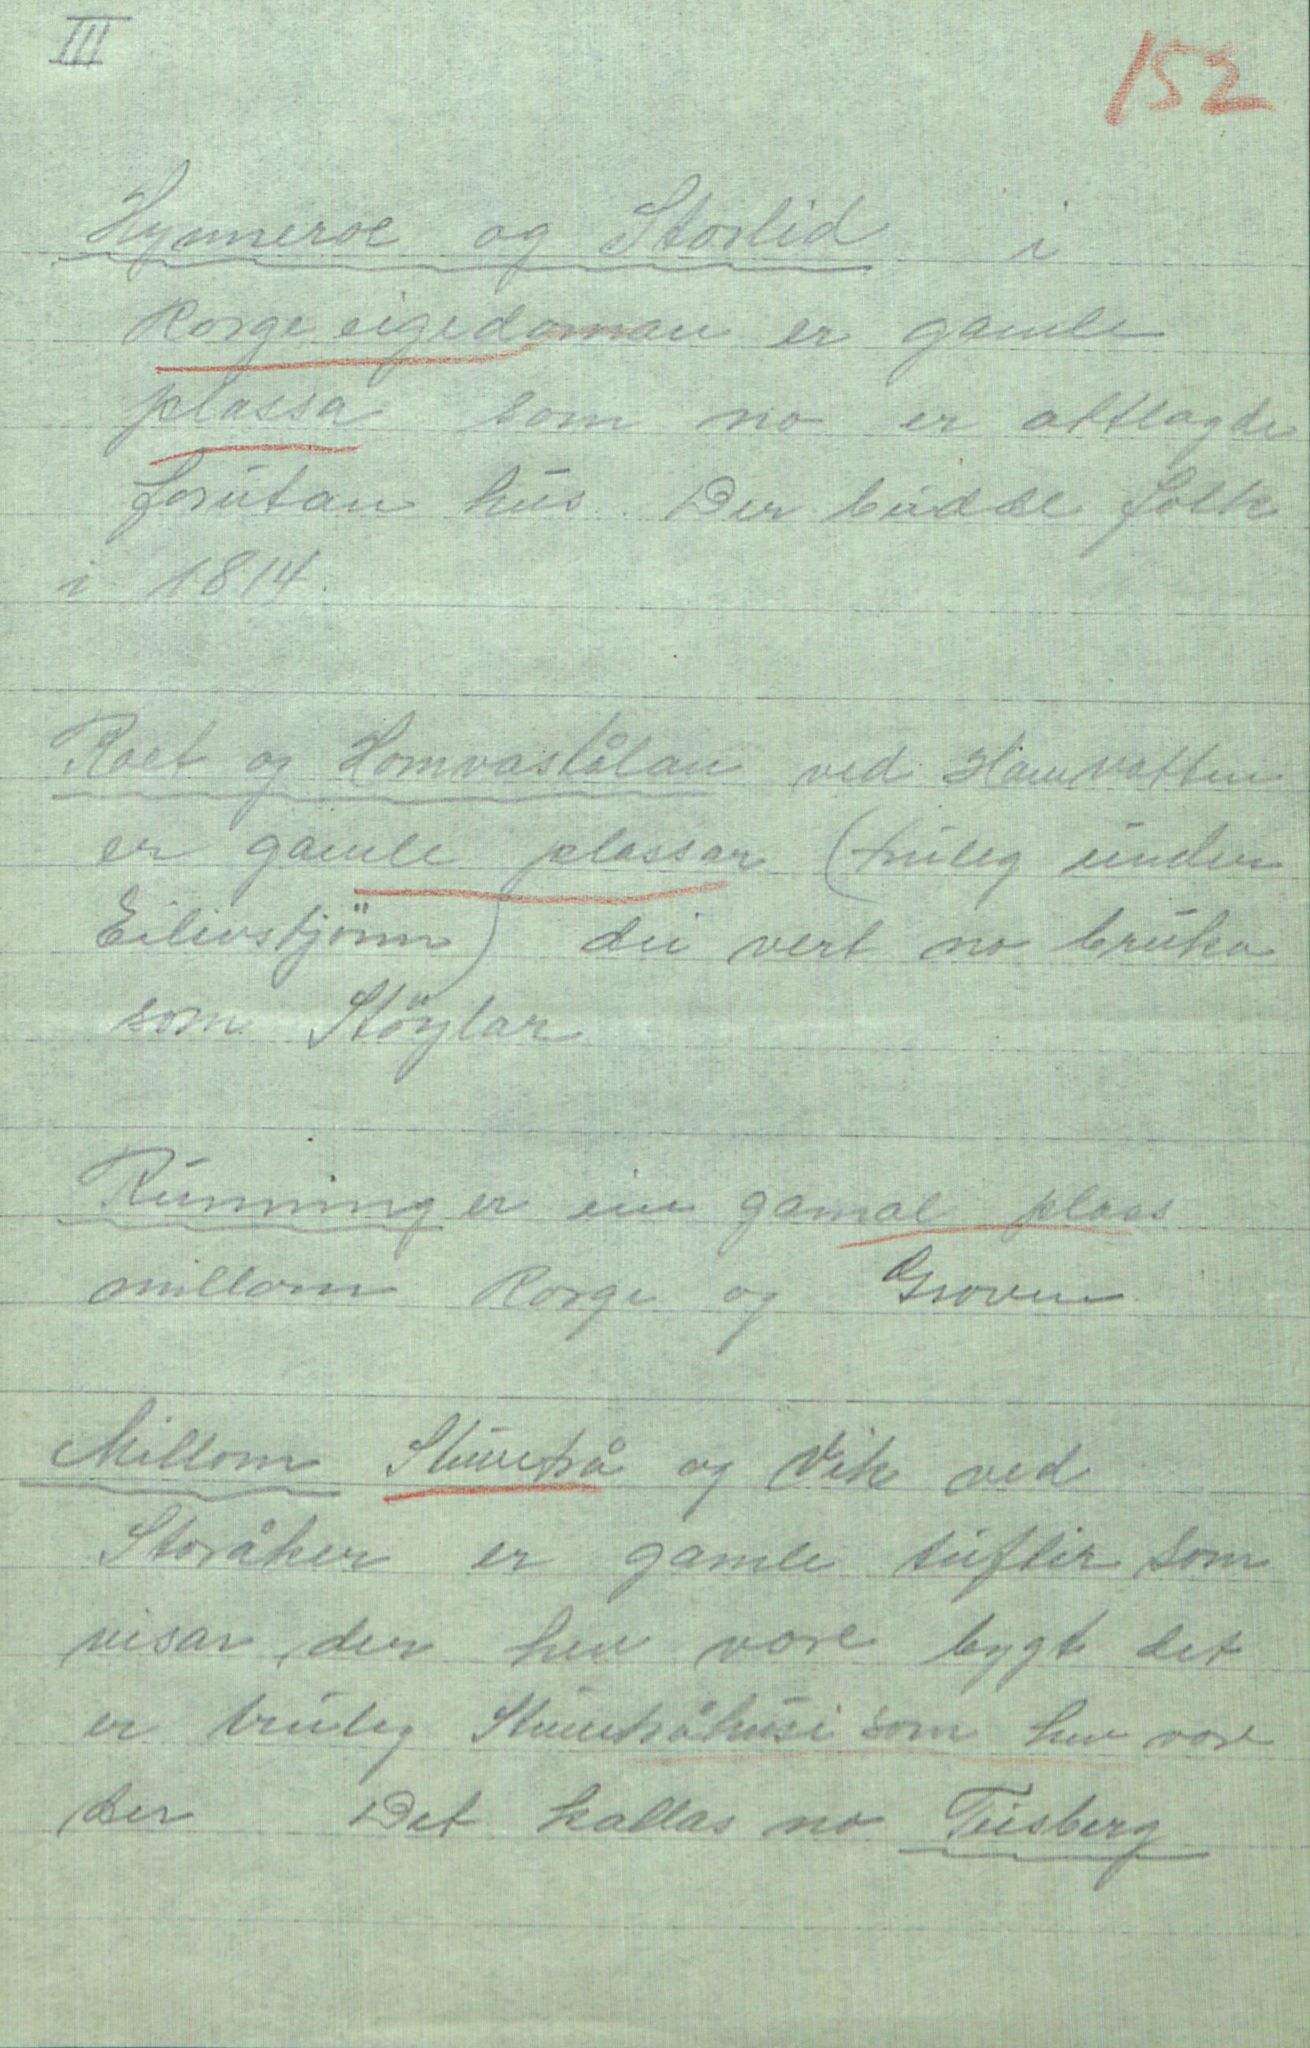 III
152
Hynneroe og Storlid i
Korge eigedoman er gamle
plassa som no er attlagde
forutan hus. Der budde folk
i 1814.
Roet og Homvastålan ved Hamvatten
er gamle plassar (truleg under
Eilivstjönn) dei vert no bruka
som Stöylar
Runninger ein gamal plass
millom Korge og Groven
Millom Stuvetrå og Vik ved
Storåker er gamle tuftir som
visar der hev vore bygt det
er truleg Stuvetråhusi som hev vore
der Det kallas no Tusberg